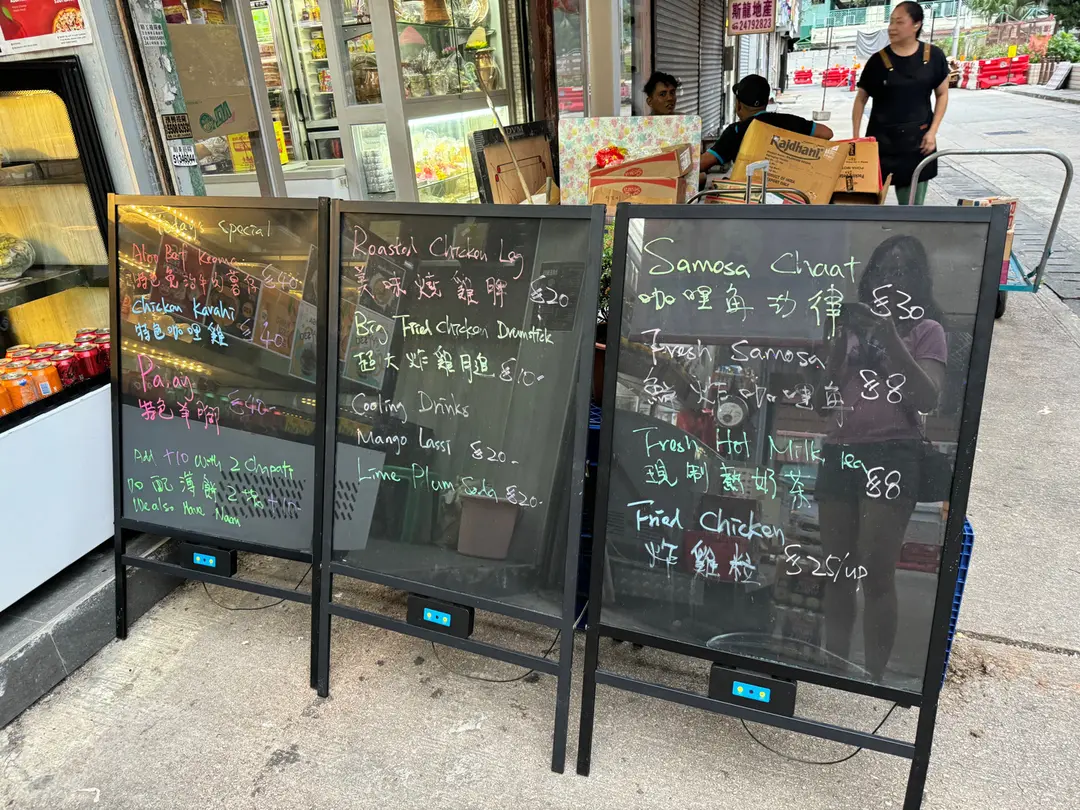 Today's Special
Aloo Beef Keema
$40-
Chicken Karahi
特色咖哩雞 $40-
Paiay
特色羊腳 $40-
Add +10 with 2 Chpati
加配薄餅2塊 +10
We also Have Naan
Roasted Chicken Leg
美味燒雞髀 $20
Big Fried Chicken Drumstick
超大炸雞 $10-
Cooling Drinks
Mango Lassi $20-
Lime Plum Soda $20-
Samosa Chaat
咖哩角 $30
Fresh Samosa
鮮炸咖哩角 $8
Fresh Hot Milk Tea
現制熱奶茶 $8
Fried Chicken
炸雞粒 $25/up
Rajdhani
斯龍地產
24792823